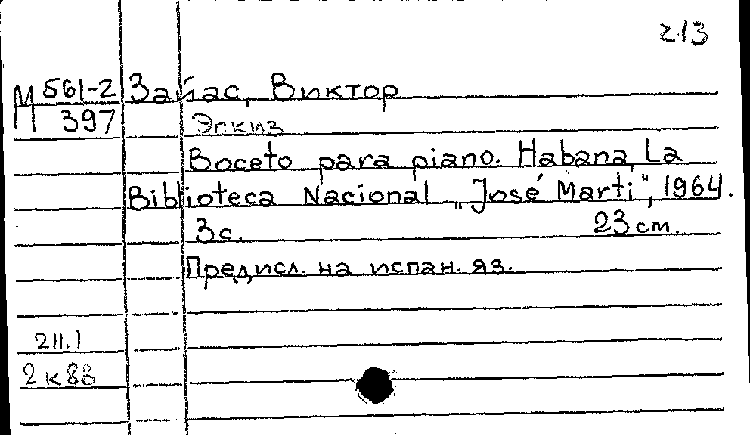 213
М 561-2 Зайас, Виктор
397 Эпкиз
Boceto para piano. Habana, La
Biblioteca Nacional „José Marti", 1964.
3с. 23 см.
Предисл. на испан. яз.
211.1
2 к 88